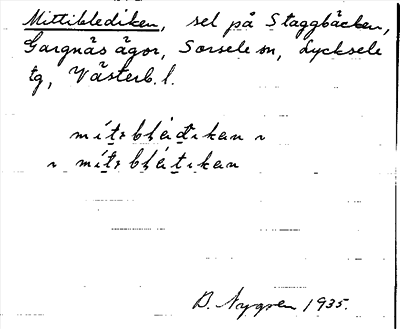 Mittiblediken, sel på Staggbäcken,
Gargnäs ägor, Sorsele sn, Lycksele
tg, Västerb. l.
mítɩblédikan ɩ
ɩ mítɩblétikan
D. Nygren 1935.